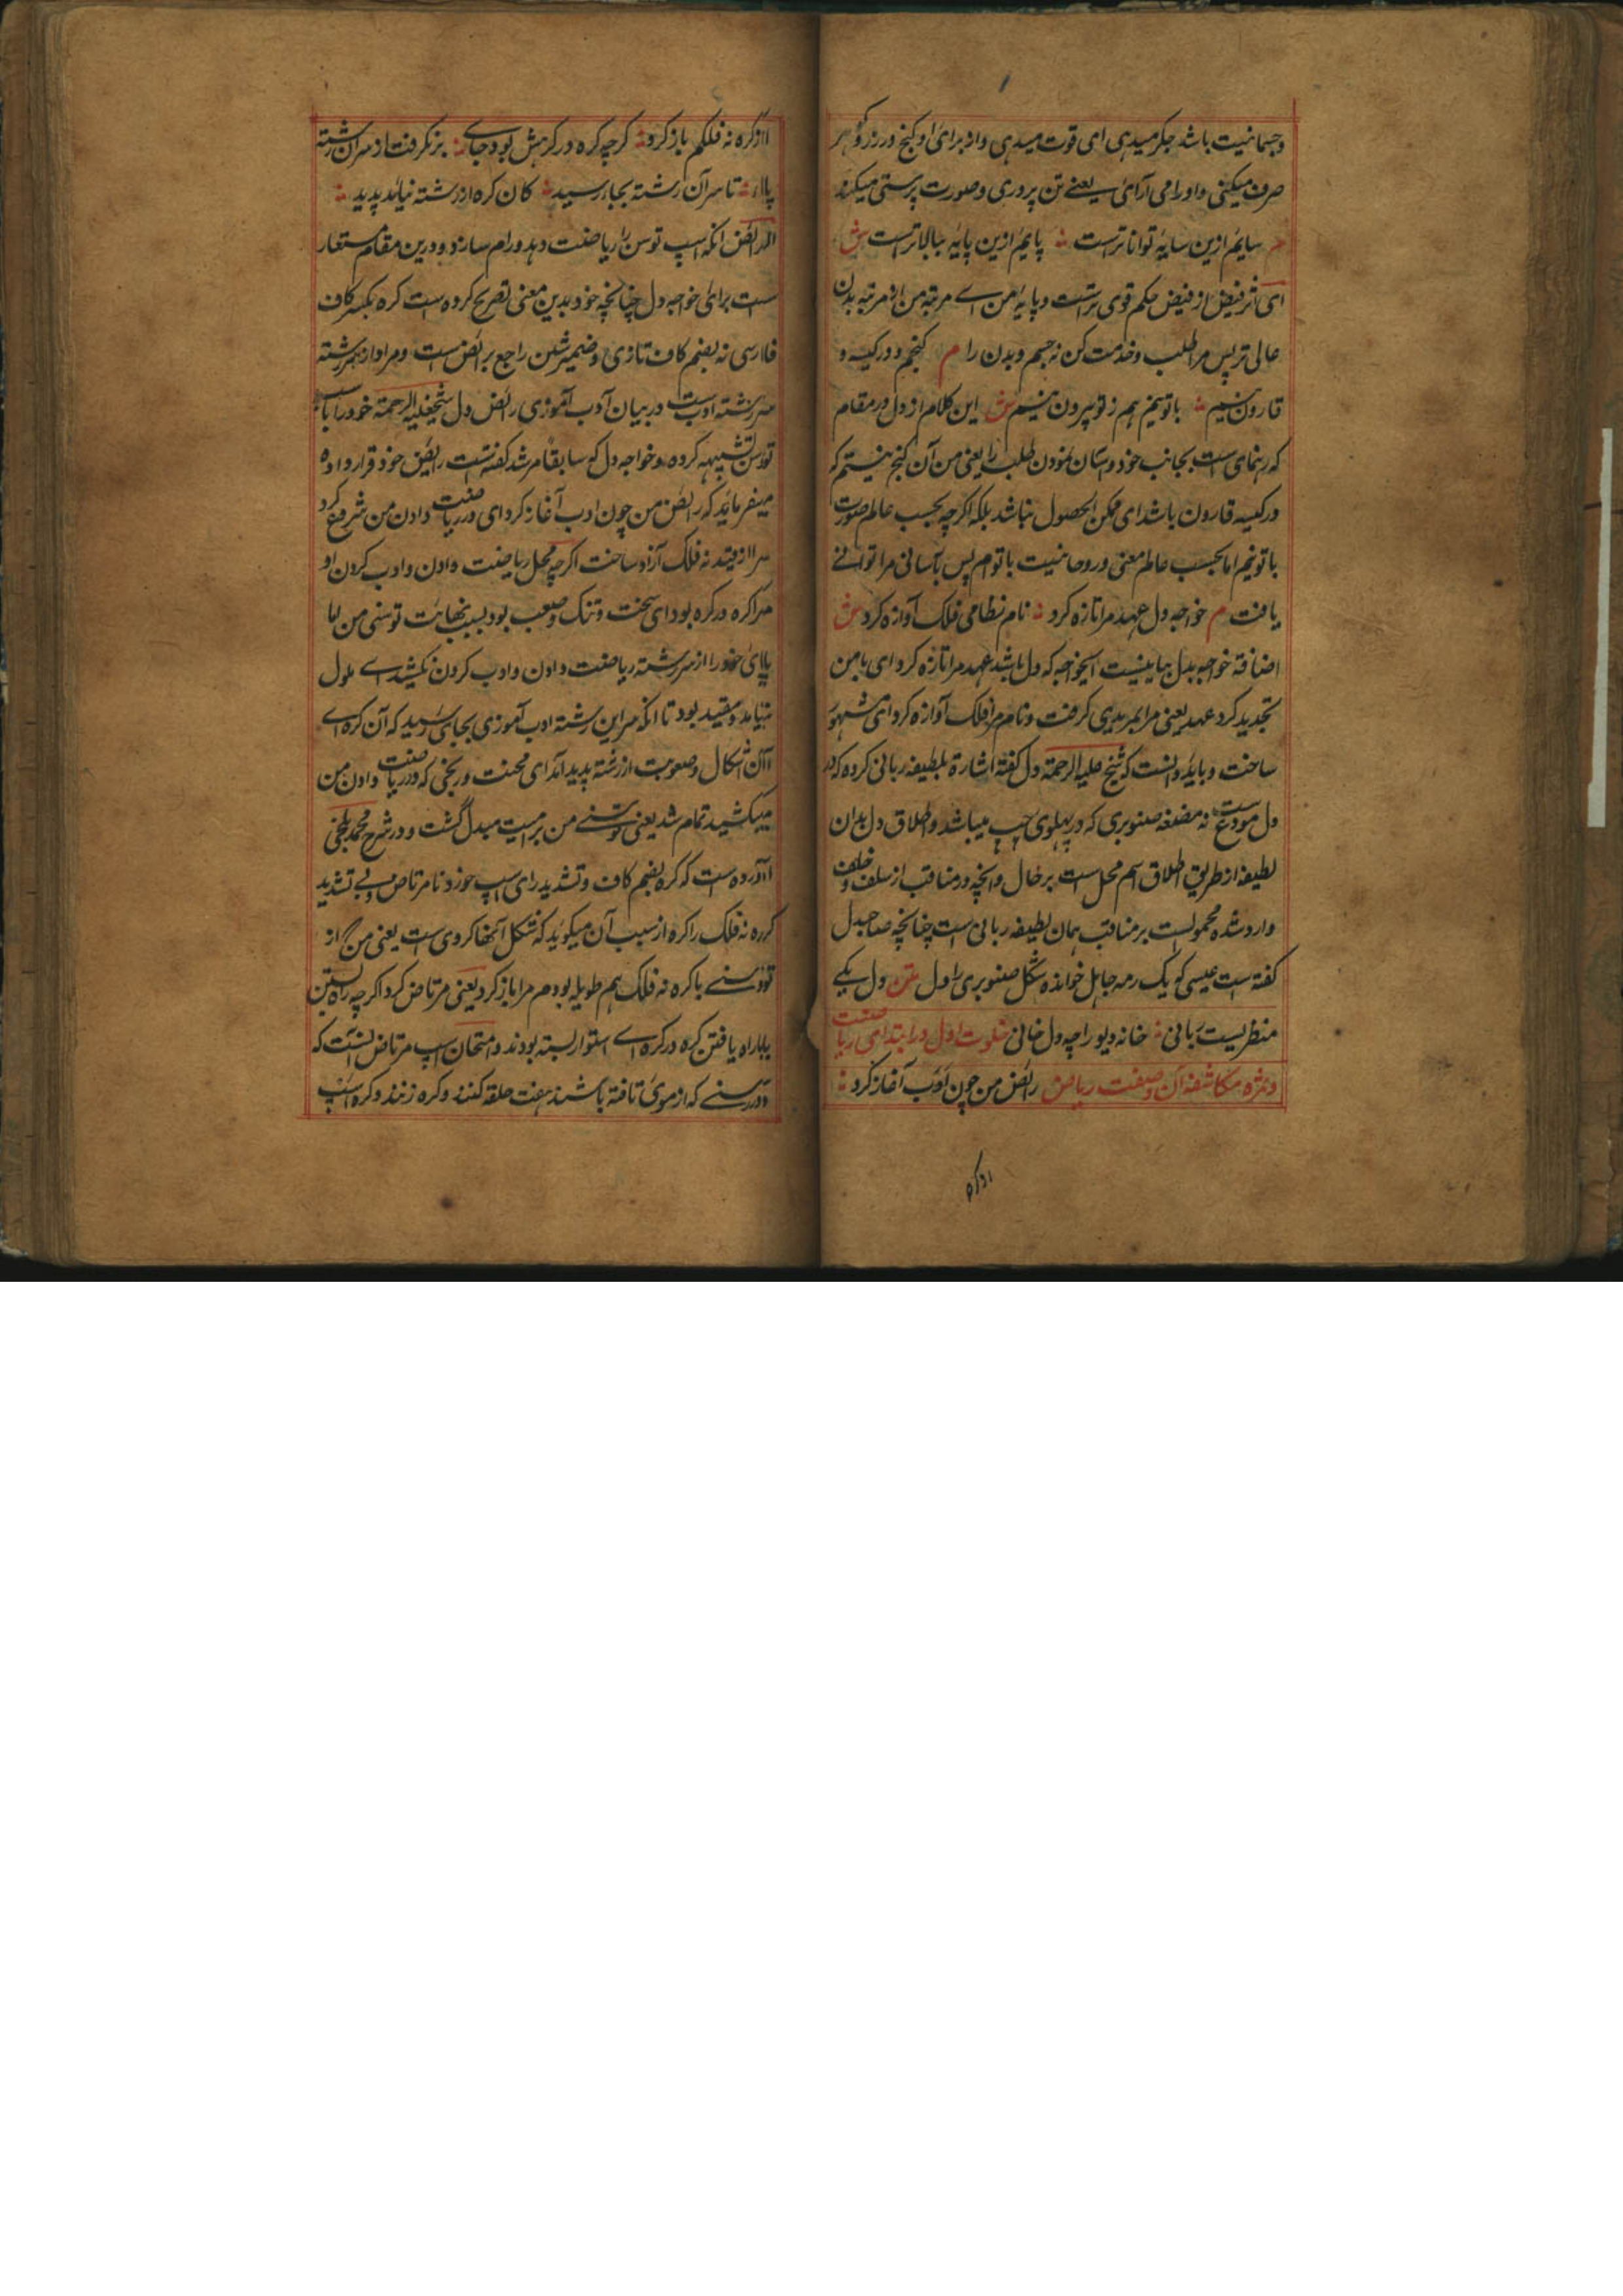 وجسمانیت باشد جکر میدهی ای قوت میدهی واز برای او کنج و زر و کوهر
صرف میکنی واورا می آرائی یعنے تن پروری وصورت پرستی میکند
م سایم ازین سایه تواناترست ؞ پایم ازین پایه ببالاترست ش
ای اثر فیض از فیض حکم قوی ترست وپایه من اے مرتبه من از مرتبه بدن
عالی تر پس مرا طلب وخدمت کن نه جسم وبدن را م کنجم ودر کیسه و
قارون نیم ؞ با تو نیم هم ز تو بیرون نیم ش این کلام از دل در مقام
که رهنمای است بجانب خود وستان نمودن طلب را یعنی من آن کنج نیستم که
در کیسه قارون باشد ای ممکن الحصول نباشد بلکه اکرچه بحسب عالم صورت
با تو نیم اما بحسب عالم معنی وروحانیت با تو ام پس بآسانی مرا توانے
یافت م خواجه دل عهد مرا تازه کرد ؞ نام نظامی فلک آوازه کرد ش
اضافة خواجه بدل بیانیست ای خواجه که دل باشد عهد مرا تازه کرد ای با من
تجدید کرد عهد یعنی مرا بمریدی کرفت ونام مرا فلک آوازه کرد ای مشهور
ساخت وباید دانست که شیخ علیه الرحمة دل کفته اشارة بلطیفه ربانی کرده که در
دل مودع ست نه مضغه صنوبری که در پهلوی چپ میباشد واطلاق دل بدان
لطیفه از طریق اطلاق اسم محل است بر حال وانچه در مناقب از سلف وخلف
وارد شده محمولست بر مناقب همان لطیفه ربانی است چنانچه صاحبدل
کفته است عیسی کو یک رمه جاهل خوانده شکل صنوبری را دل متن دل یکے
منظریست ربانی ؞ خانه دیو را چه دل خانی خلوت اول در ابتدای ریاضت
وثمره مکاشفه آن وصفت ریاض رائض من چون ادب آغاز کرد ؞
از کره
از کره نه فلکم باز کرد ؞ کرچه کره در کرهش بود جاے ؞ بر نکرفت از سر آن رشته
پاے ؞ تا سر آن رشته بجاے رسید ؞ کان کره از رشته نیامد پدید ؞
الرائض انکه اسپ توسن را ریاضت دهد ورام سازد ودرین مقام مستعار
ست برای خواجه دل چنانچه خود بدین معنی تصریح کرده است کره بکسر کاف
فارسی نه بضم کاف تازی وضمیر شین راجع برائض ست ومراد از سر رشته
سر رشته ادب ست در بیان ادب آموزی رائض دل شیخ علیه الرحمة خود را باسپ
توسن تشبیه کرده وخواجه دل که سابقا مرشد کفته ست رائض خود قرار داده
میفرماید که رائض من چون ادب آغاز کرد ای در ریاضت دادن من شروع کرد
مرا از قید نه فلک آزاد ساخت اکرچه محل ریاضت دادن وادب کردن او
مرا کره در کره بود ای سخت وتنک وصعب بود بسبب نهایت توسنی من اما
پای خود را از سر رشته ریاضت دادن وادب کردن نکشید اے ملول
نیامد ومقید بود تا انکه سر این رشته ادب آموزی بجای رسید که آن کره اے
آن اشکال وصعوبت از رشته پدید آمد ای محنت ورنجی که در ریاضت دادن من
میکشید تمام شد یعنی توسنے من برامیت مبدل کشت ودر شرح محمد بلخی
آورده است که کره بضم کاف وتشدید رای اسپ خورد نامرتاض وبے تشدید
کره نه فلک را کره از سبب آن میکوید که شکل آنها کروی ست یعنی من کز
توسنے با کره نه فلک هم طویله بودم مرا باز کرد یعنی مرتاض کرد اکرچه راه بستن
یا راه یافتن کره در کره اے استوار بسته بودند وامتحان اسپ مرتاض انست که
در رسنے که از موی تافته باشند هفت حلقه کنند وکره زنند وکره اسپ